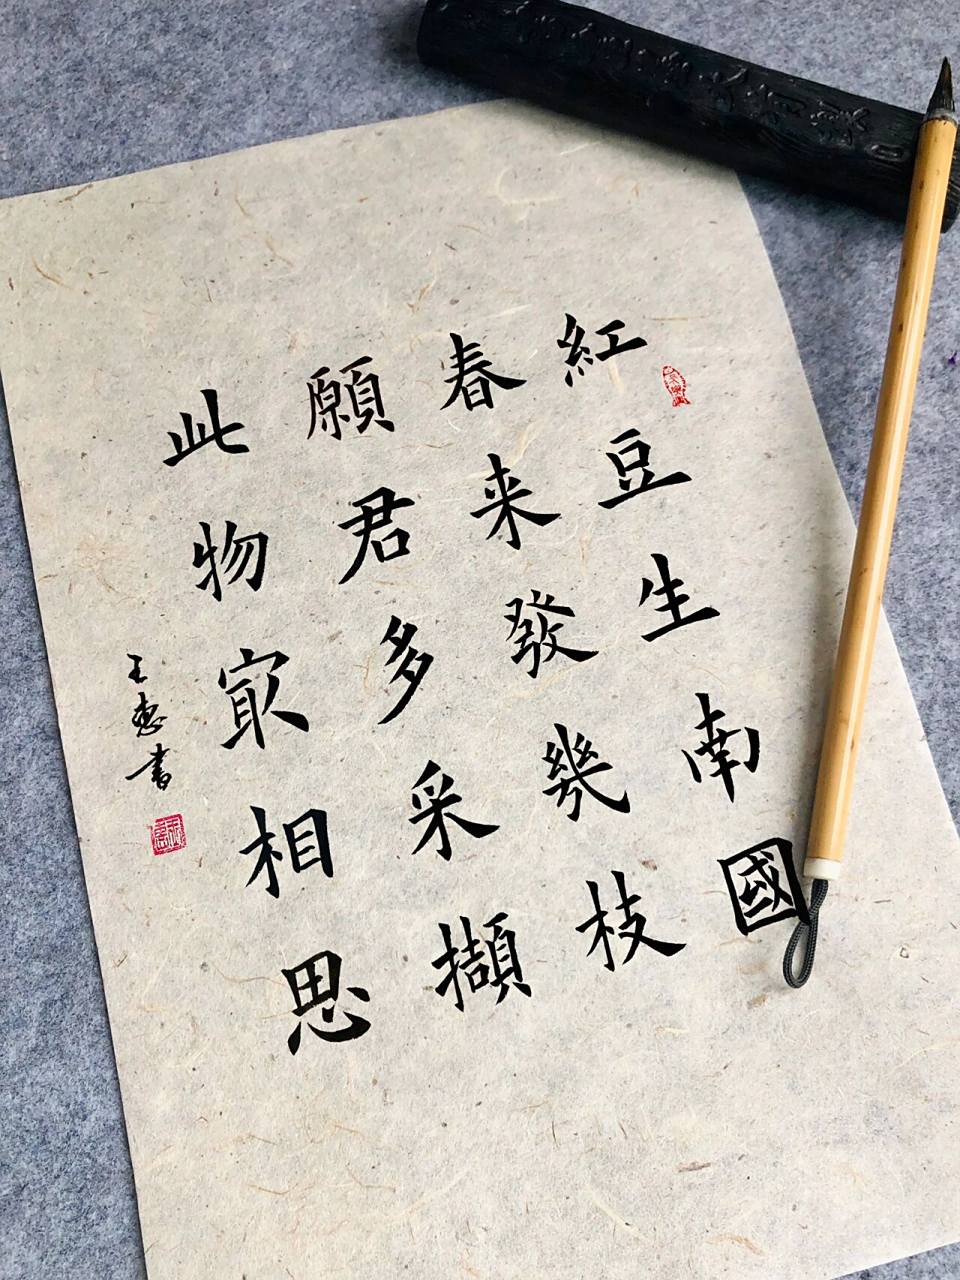 紅豆生南國
春来發幾枝
願君多采擷
此物㝡相思
王惠書